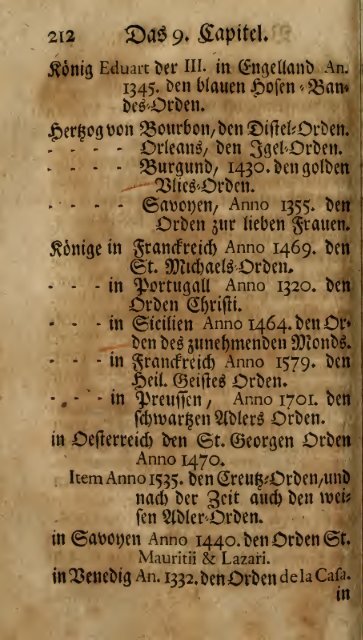 212 Das 9. Capitel.
König Eduart der III. in Engelland An.
1345. den blauen Hosen-Ban-
des-Orden.
Hertzog von Bourbon, den Distel-Orden.
- - - - Orleans, den Igel-Orden.
- - - - Burgund, 1430. den golden
Vlies-Orden.
- - - - Savoyen, Anno 1355. den
Orden zur lieben Frauen.
Könige in Franckreich Anno 1469. den
St. Michaels-Orden.
- - - in Portugall Anno 1320. den
Orden Christi.
- - - in Sicilien Anno 1464. den Or-
den des zunehmenden Monds.
- - - in Franckreich Anno 1579. den
Heil. Geistes Orden.
- - - in Preussen, Anno 1701. den
schwartzen Adlers Orden.
in Oesterreich den St. Georgen Orden
Anno 1470.
Item Anno 1535. den Creutz-Orden, und
nach der Zeit auch den wei-
sen Adler-Orden.
in Savoyen Anno 1440. den Orden St.
Mauritii & Lazari.
in Venedig An. 1332. den Orden de la Casa.
in